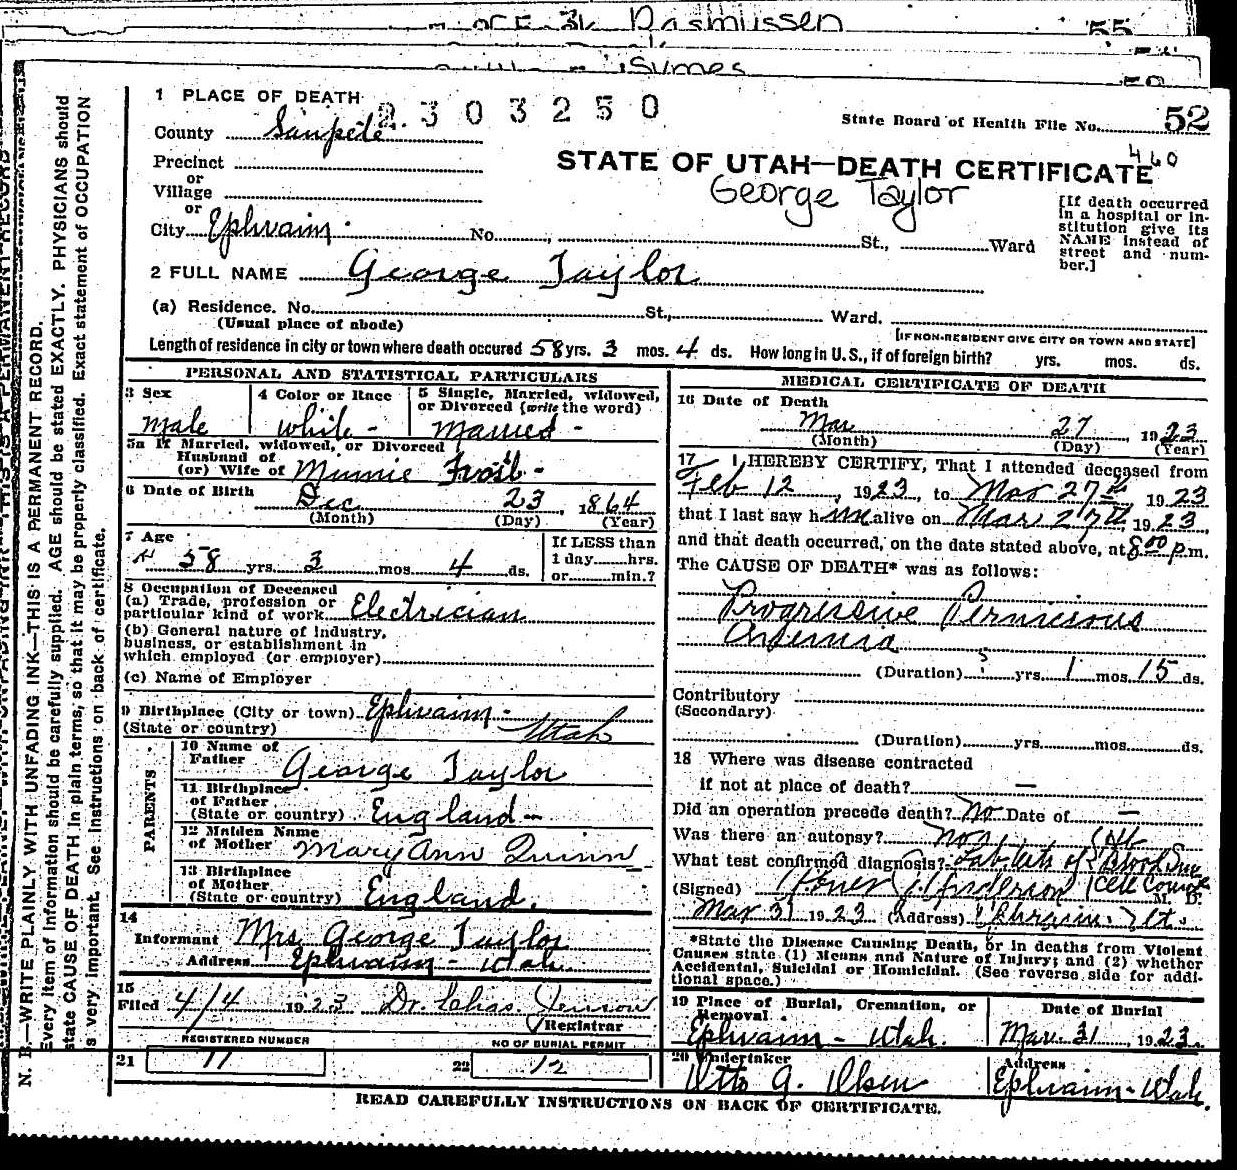 Rasmussen 55
Symes
1 PLACE OF DEATH
2303250
State Board of Health File No. 52
County Sanpete
Precinct
or
Village
or
STATE OF UTAH—DEATH CERTIFICATE 460
George Taylor
City Ephraim No. , St., Ward
[If death occurred in a hospital or institution give its NAME instead of street and number.]
2 FULL NAME George Taylor
(a) Residence. No. St., Ward.
(Usual place of abode)
[IF NON-RESIDENT GIVE CITY OR TOWN AND STATE]
Length of residence in city or town where death occured 58 yrs. 3 mos. 4 ds. How long in U. S., if of foreign birth? yrs. mos. ds.
PERSONAL AND STATISTICAL PARTICULARS
3 Sex
male
4 Color or Race
white -
5 Single, Married, widowed,
or Divorced (write the word)
Married -
5a If Married, widowed, or Divorced
Husband of
(or) Wife of Minnie Frost -
6 Date of Birth
Dec 23, 1864
(Month) (Day) (Year)
7 Age
58 yrs. 3 mos. 4 ds.
If LESS than
1 day......hrs.
or......min.?
8 Occupation of Deceased
(a) Trade, profession or
particular kind of work Electrician
(b) General nature of industry,
business, or establishment in
which employed (or employer)
(c) Name of Employer
9 Birthplace (City or town) Ephraim -
(State or country) Utah
PARENTS
10 Name of
Father George Taylor
11 Birthplace
of Father
(State or country) England -
12 Maiden Name
of Mother Mary Ann Quinn
13 Birthplace
of Mother
(State or country) England.
14
Informant Mrs George Taylor
Address Ephraim - Utah.
15
Filed 4/4 1923 Dr. Chas. Jenson
Registrar
REGISTERED NUMBER
21 11
NO OF BURIAL PERMIT
22 12
MEDICAL CERTIFICATE OF DEATH
16 Date of Death
Mar 27, 1923
(Month) (Day) (Year)
17 I HEREBY CERTIFY, That I attended deceased from
Feb 12, 1923, to Mar 27th 1923
that I last saw him alive on Mar 27th, 1923,
and that death occurred, on the date stated above, at 8 00 p.m.
The CAUSE OF DEATH* was as follows:
Progressive Pernicious
Anemia
(Duration) yrs. 1 mos. 15 ds.
Contributory
(Secondary)
(Duration) yrs. mos. ds.
18 Where was disease contracted
if not at place of death? —
Did an operation precede death? No Date of —
Was there an autopsy? No
What test confirmed diagnosis? Lab tests of Blood
(Signed) Anderson M. D.
Mar 31 1923 (Address) Ephraim, Ut.
*State the Disease Causing Death, or in deaths from Violent
Causes state (1) Means and Nature of Injury; and (2) whether
Accidental, Suicidal or Homicidal. (See reverse side for addi-
tional space.)
19 Place of Burial, Cremation, or
Removal.
Ephraim - Utah.
Date of Burial
Mar. 31, 1923.
20 Undertaker
Otto A. Olsen
Address
Ephraim - Utah.
READ CAREFULLY INSTRUCTIONS ON BACK OF CERTIFICATE.
N. B.—WRITE PLAINLY WITH UNFADING INK—THIS IS A PERMANENT RECORD.
Every item of information should be carefully supplied. AGE should be stated EXACTLY. PHYSICIANS should
state CAUSE OF DEATH in plain terms, so that it may be properly classified. Exact statement of OCCUPATION
is very important. See instructions on back of certificate.